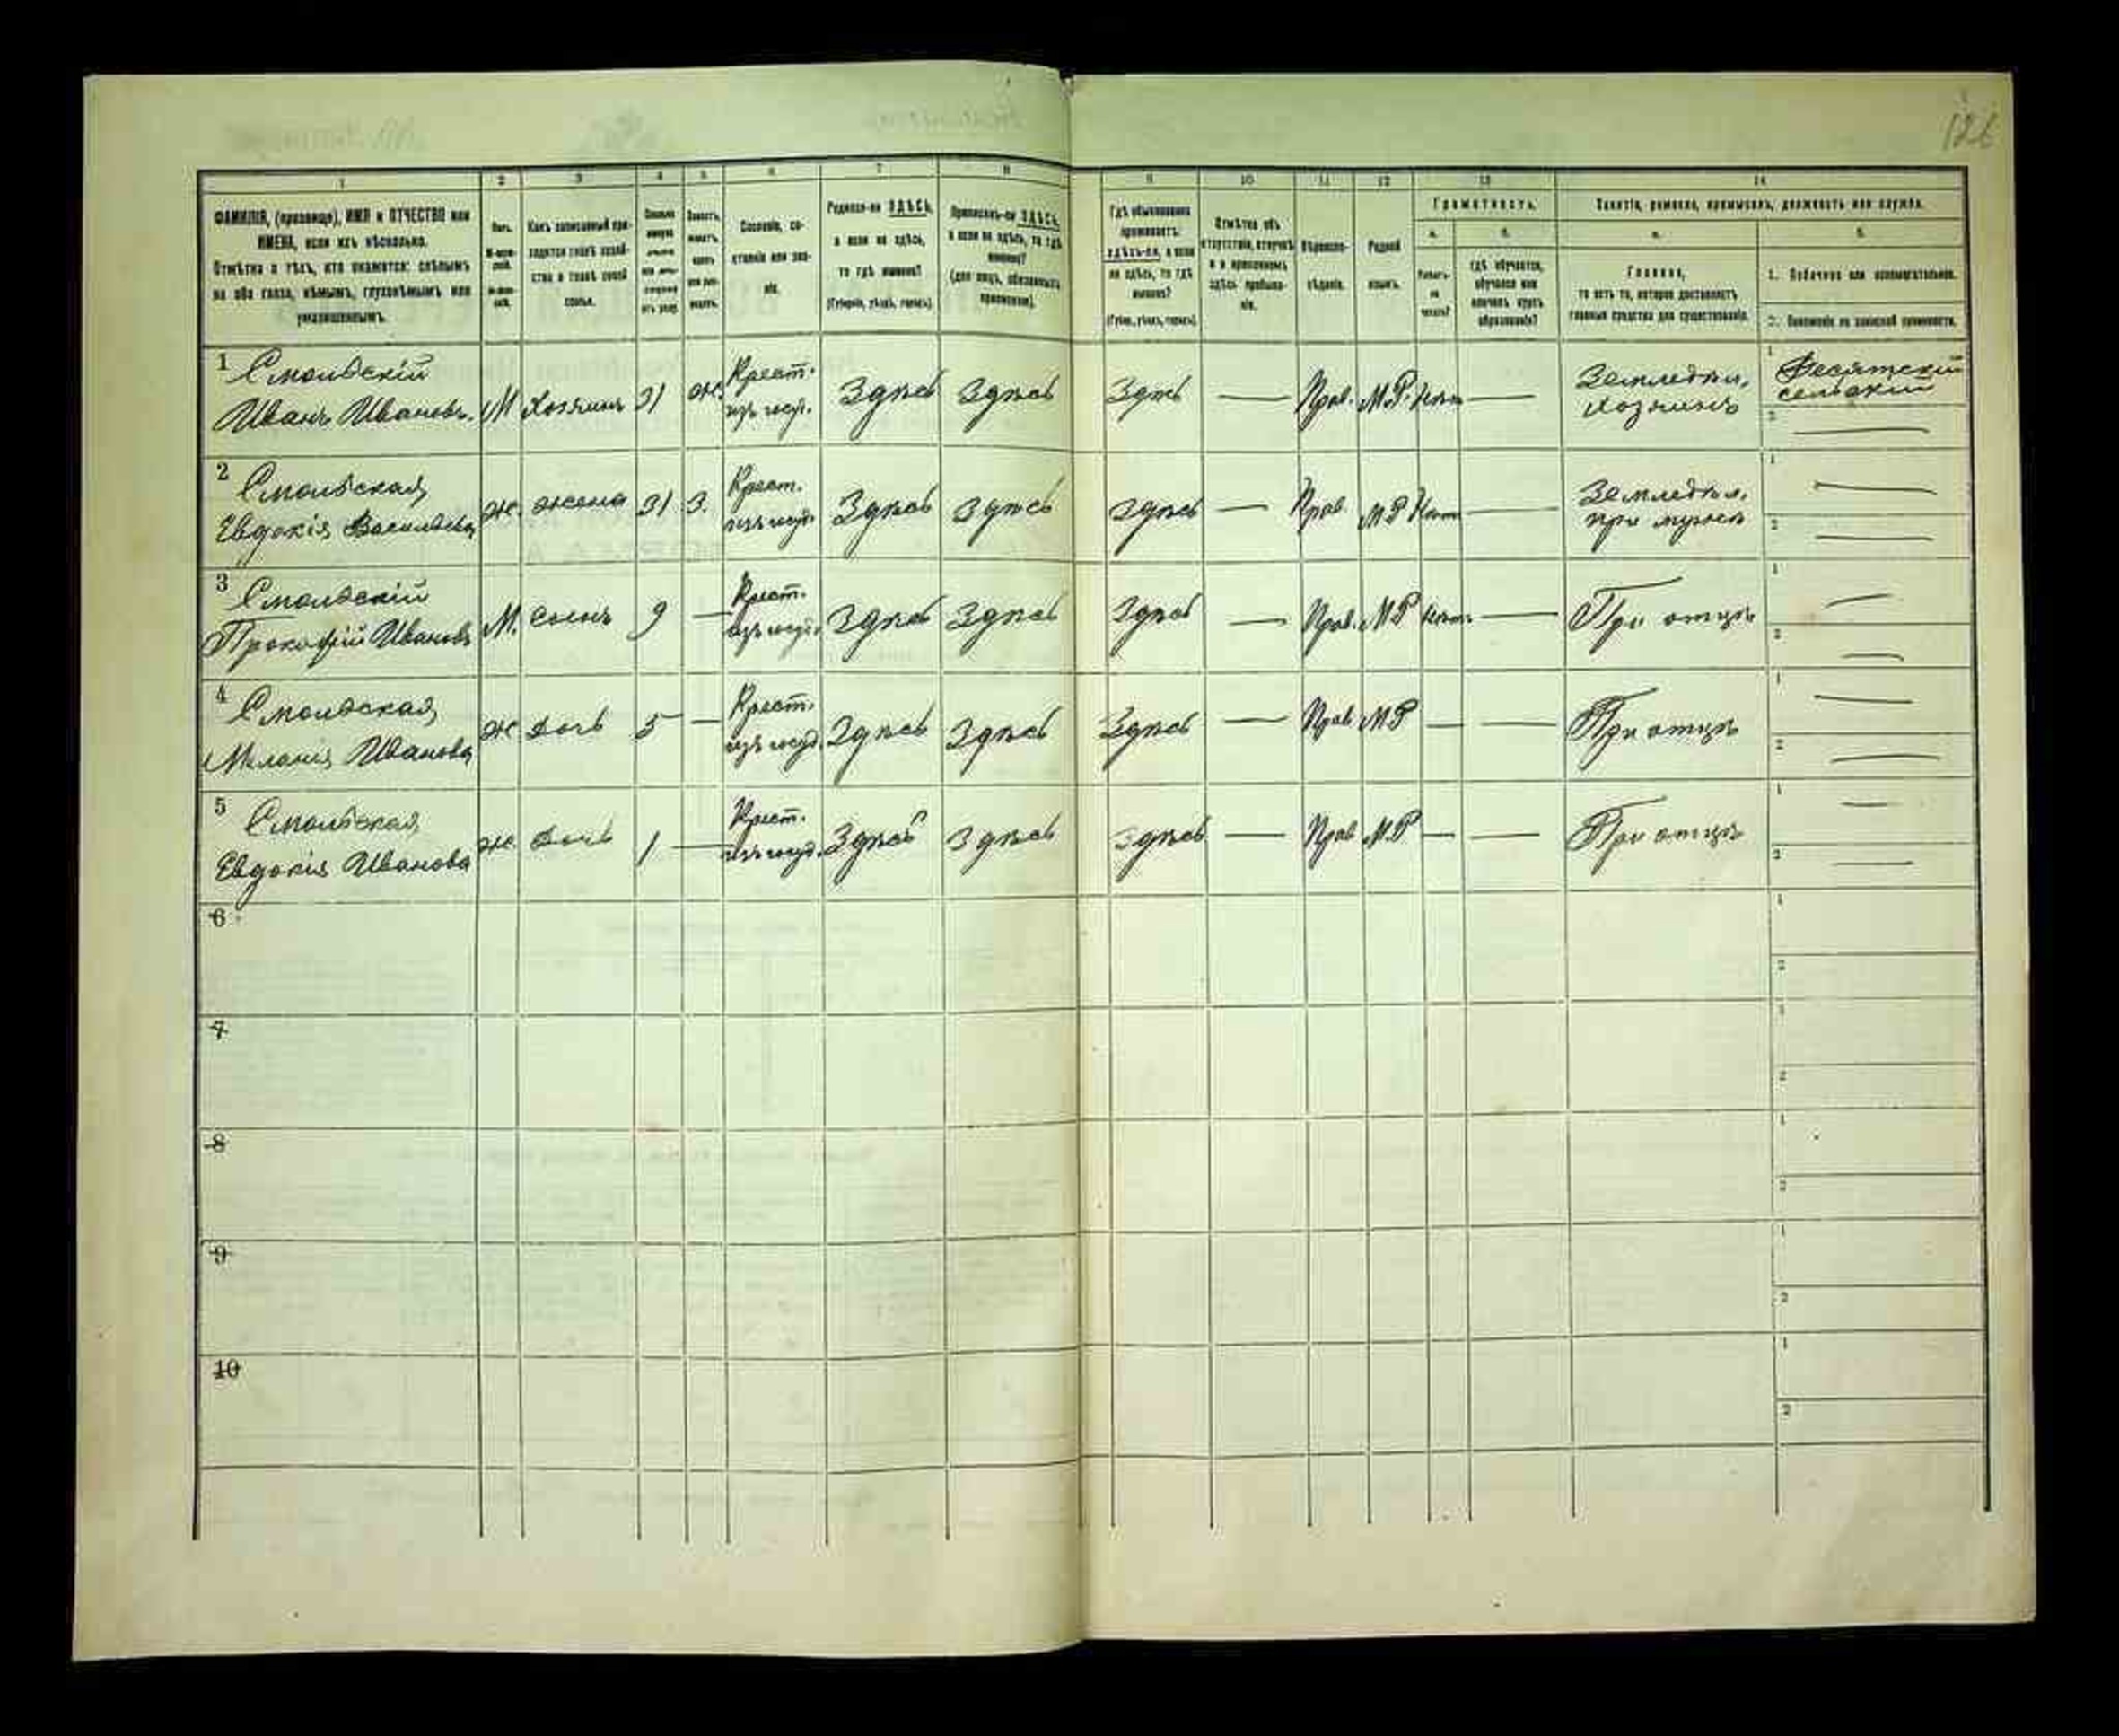 126
1 2 3 4 5 6 7 8 9 10 11 12 13 14
ФАМИЛІЯ, (прозвище), ИМЯ и ОТЧЕСТВО или
ИМЕНА, если ихъ нѣсколько.
Отмѣтка о тѣхъ, кто окажется: слѣпымъ
на оба глаза, нѣмымъ, глухонѣмымъ или
умалишеннымъ.
Полъ.
Какъ записанный при-
ходится главѣ хозяй-
ства и главѣ своей
семьи.
Сословіе, со-
стояніе или зва-
ніе.
Родился-ли ЗДѢСЬ,
а если не здѣсь,
то гдѣ именно?
(Губернія, уѣздъ, городъ).
Приписанъ-ли ЗДѢСЬ,
а если не здѣсь, то гдѣ
именно?
(для лицъ, обязанныхъ
припискою).
Гдѣ обыкновенно
проживаетъ:
здѣсь-ли, а если
не здѣсь, то гдѣ
именно?
(Губ., уѣздъ, городъ).
Отмѣтка объ
отсутствіи, отлучкѣ
и о временномъ
здѣсь пребыва-
ніи.
Вѣроиспо-
вѣданіе.
Родной
языкъ.
Грамотность.
а. б.
Умѣетъ-
ли
читать?
Гдѣ обучается,
обучался или
кончилъ курсъ
образованія?
Занятіе, ремесло, промыселъ, должность или служба.
а. б.
Главное,
то есть то, которое доставляетъ
главныя средства для существованія.
1. Побочное или вспомогательное.
2. Положеніе по воинской повинности.
1 Смольскій
Иванъ Ивановъ. М Хозяинъ 31 ж. Крест. изъ госуд. Здѣсь Здѣсь Здѣсь — Прав. М.Р. Нѣтъ — Земледѣл. хозяинъ 1 Десятскій сельскій 2 —
2 Смольская
Евдокія Васильева ж. жена 31 З. Крест. изъ госуд. Здѣсь Здѣсь здѣсь — Прав. М Р Нѣтъ — Земледѣл. при мужѣ 1 — 2 —
3 Смольскій
Прокофій Ивановъ М. сынъ 9 — Крест. изъ госуд. Здѣсь Здѣсь Здѣсь — Прав. М Р Нѣтъ — При отцѣ 1 — 2 —
4 Смольская
Меланія Иванова ж дочь 5 — Крест. изъ госуд. Здѣсь Здѣсь Здѣсь — Прав М Р — — При отцѣ 1 — 2 —
5 Смольская
Евдокія Иванова ж. дочь 1 — Крест. изъ госуд. Здѣсь Здѣсь Здѣсь — Прав М.Р — — При отцѣ 1 — 2 —
6 1 2
7 1 2
8 1 2
9 1 2
10 1 2